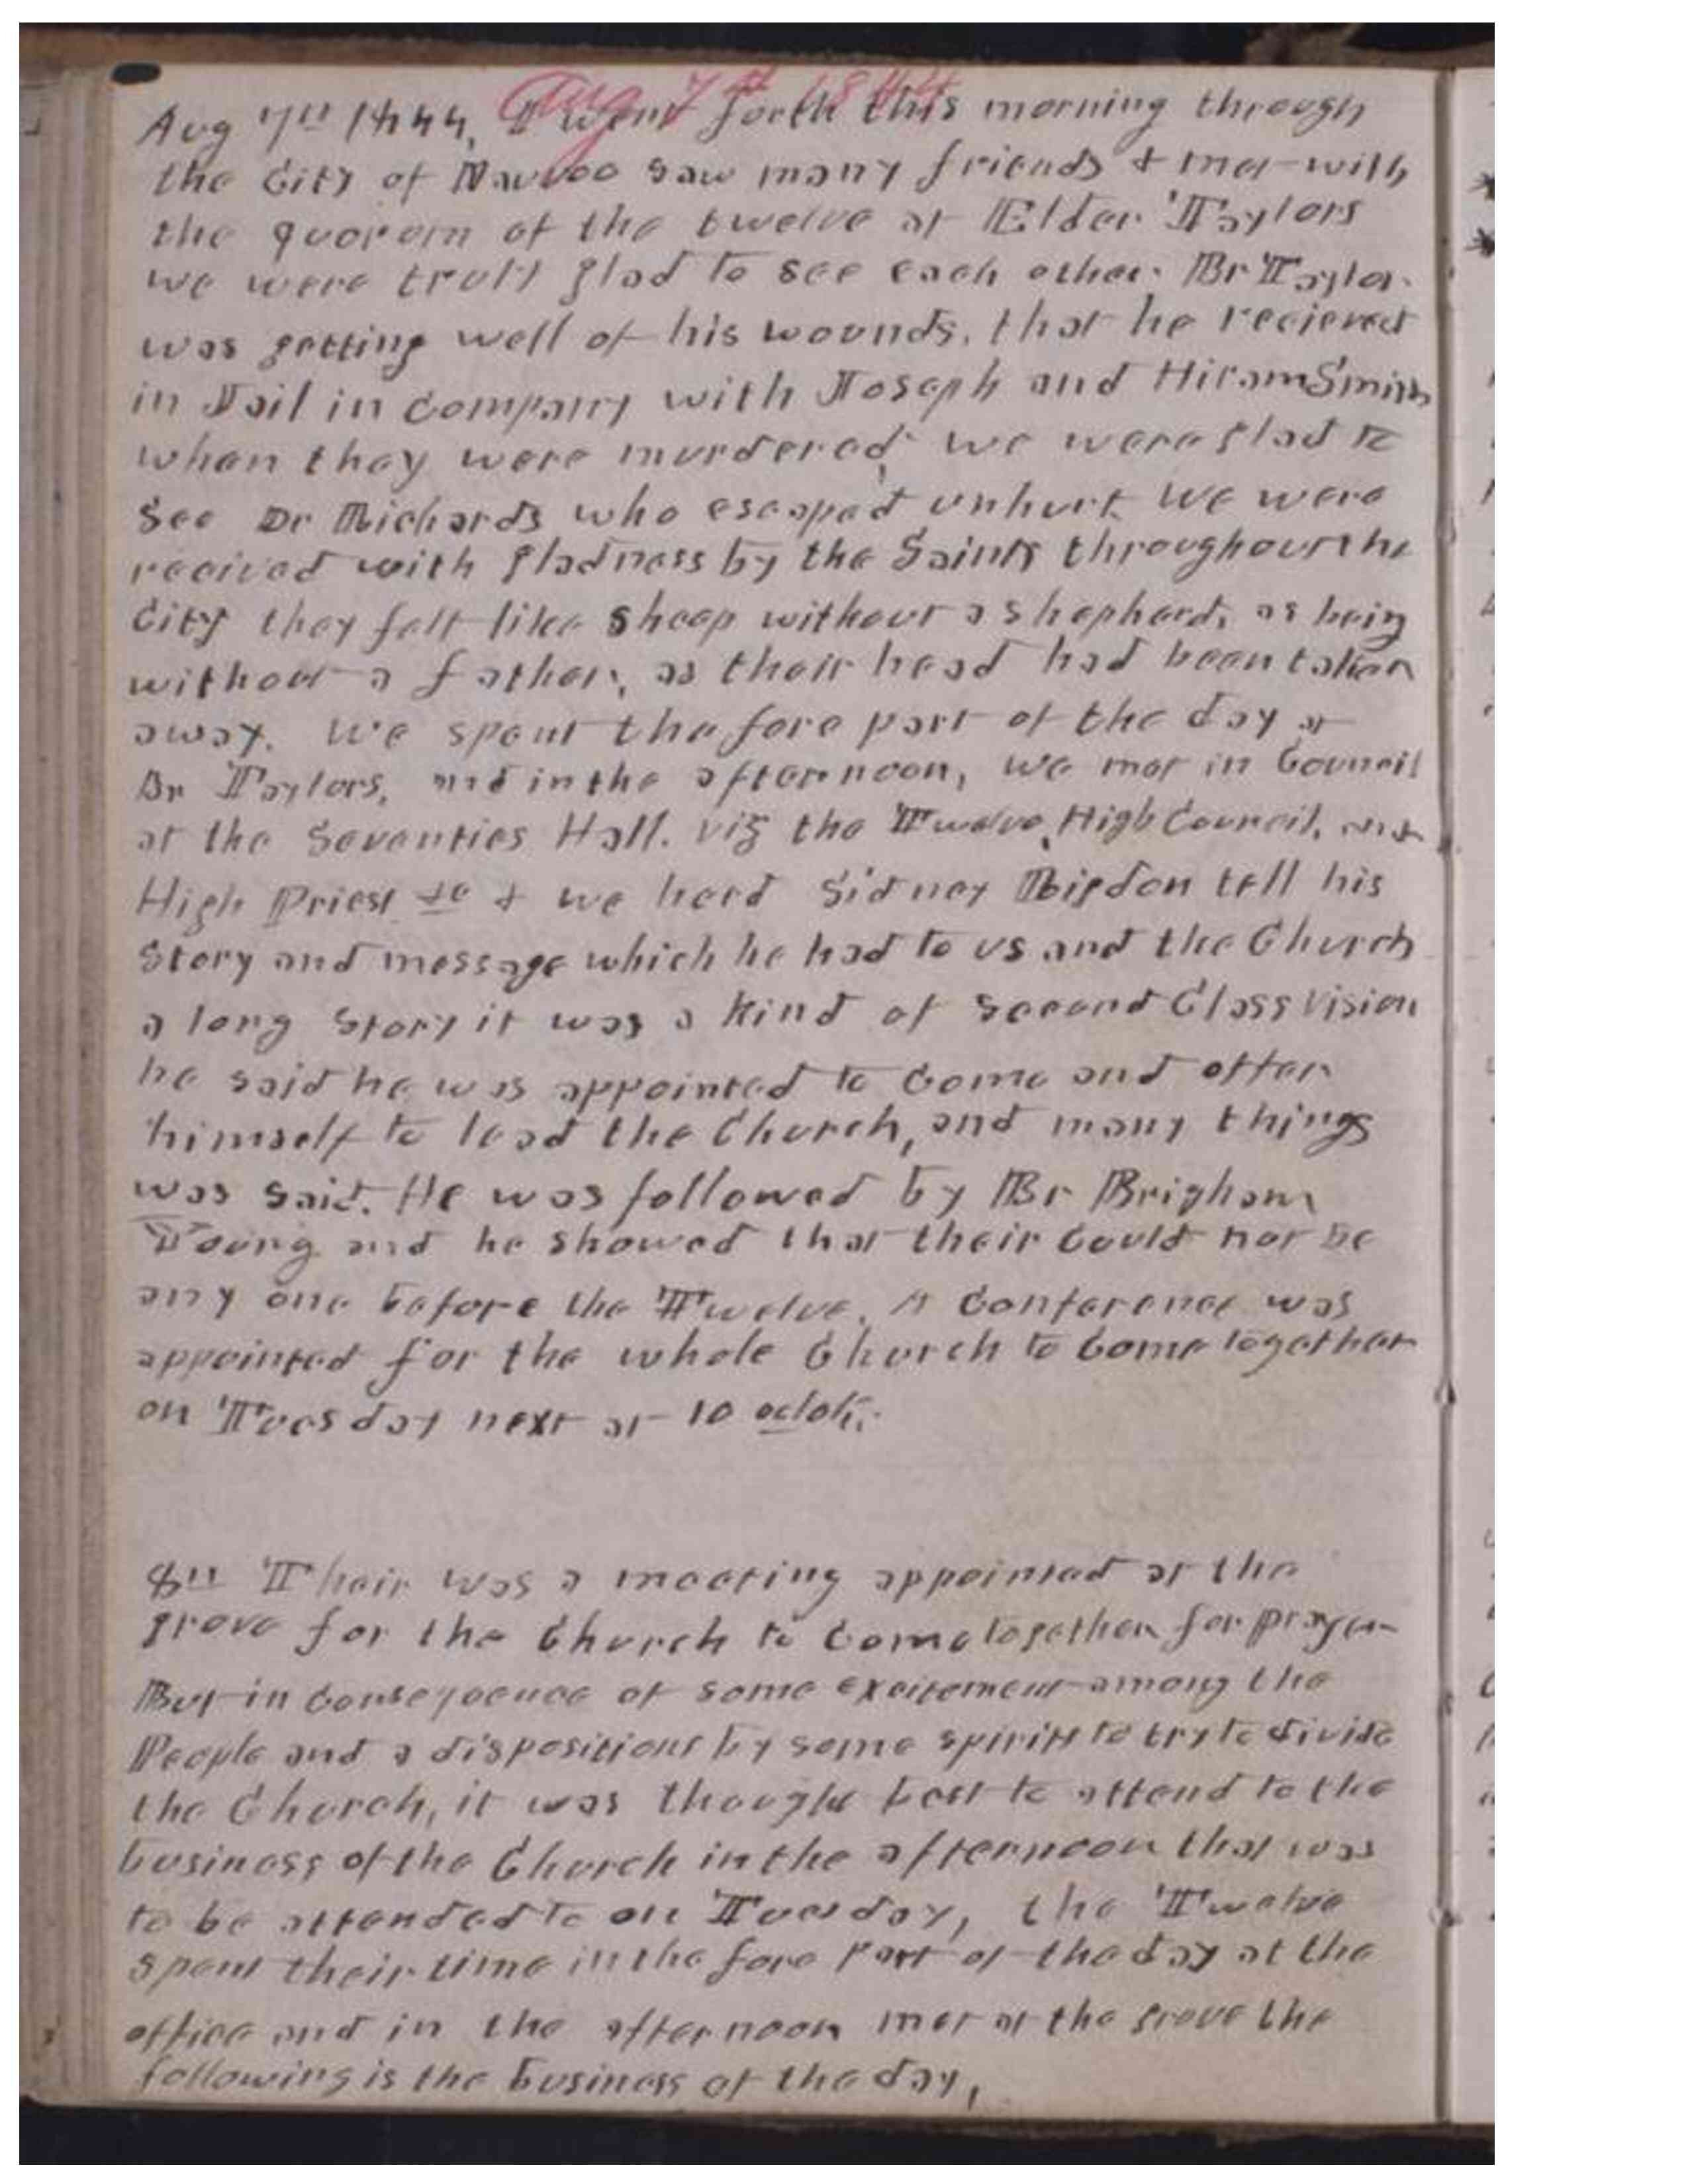 Aug 7th 1844
Aug 7th 1844, I went forth this morning through
the City of Nauvoo saw many friends & met with
the quorom of the twelve at Elder Taylors
we were truly glad to see each other. Br Taylor
was getting well of his wounds, that he recieved
in Jail in Company with Joseph and Hiram Smith
when they were murdered, we were glad to
See Dr Richards who escaped unhurt We were
recived with gladness by the Saints throughout the
City they felt like sheep without a shepherd, as being
without a father, as their head had been taken
away. We spent the fore part of the day at
Br Taylors, and in the afternoon, we met in Council
at the Seventies Hall. viz the Twelve, High Council, and
High Priest &c & we herd Sidney Rigdon tell his
Story and message which he had to us and the Church
a long story it was a kind of Second Class vision
he said he was appointed to Come and offer
himself to lead the Church, and many things
was said. He was followed by Br Brigham
Young and he showed that their Could not be
any one before the Twelve. A Conference was
appointed for the whole Church to Come together
on Tuesday next at 10 oclok.
8th Their was a meeting appointed at the
grove for the Church to Come together for prayer
But in Consequence of some excitement among the
People and a dispositions by some spirits to try to divide
the Church, it was thought best to attend to the
business of the Church in the afternoon that was
to be attended to on Tuesday, the Twelve
spent their time in the fore part of the day at the
office and in the afternoon met at the grove the
following is the business of the day,